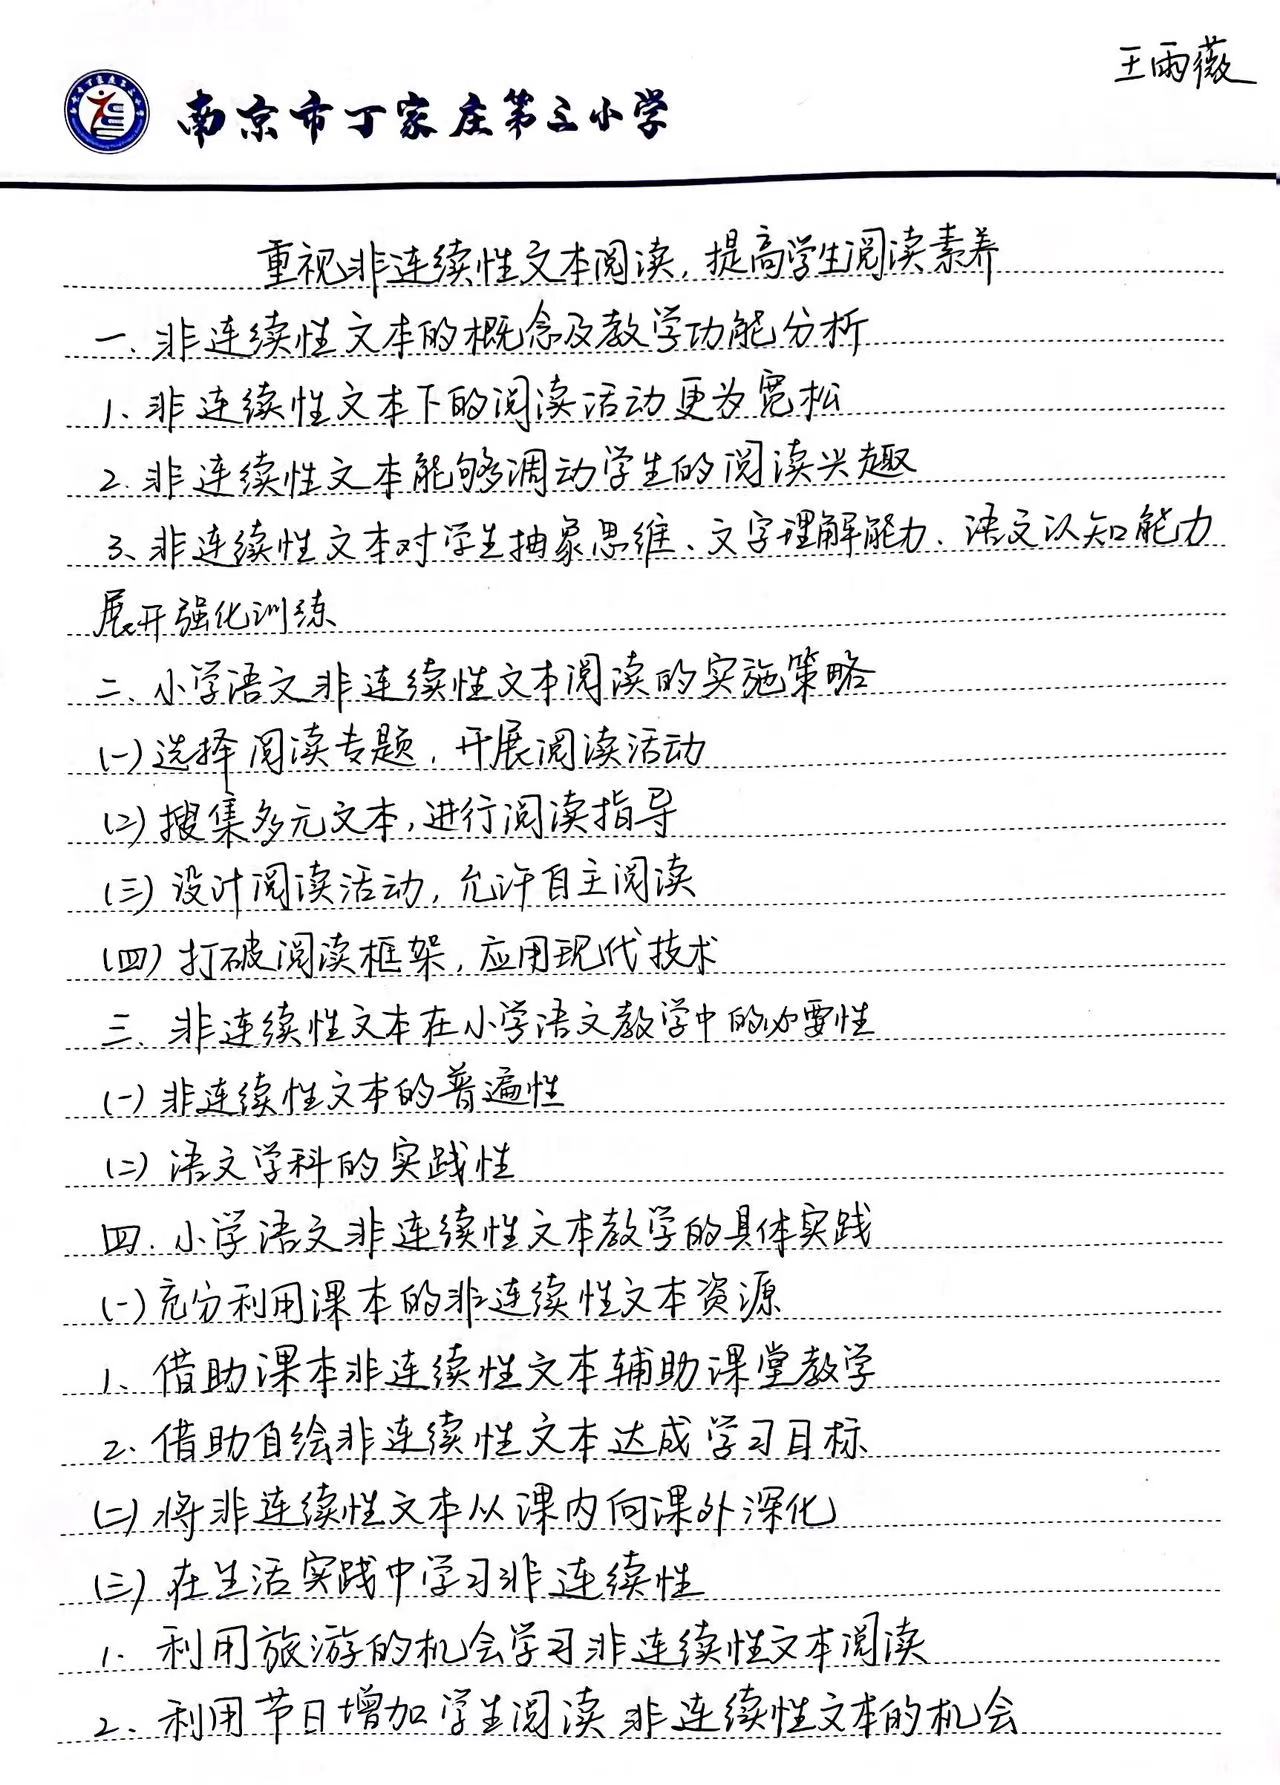 王雨薇
南京市丁家庄第三小学
重视非连续性文本阅读，提高学生阅读素养
一、非连续性文本的概念及教学功能分析
1、非连续性文本下的阅读活动更为宽松
2、非连续性文本能够调动学生的阅读兴趣
3、非连续性文本对学生抽象思维、文字理解能力、语文认知能力
展开强化训练
二、小学语文非连续性文本阅读的实施策略
(一)选择阅读专题，开展阅读活动
(二)搜集多元文本，进行阅读指导
(三)设计阅读活动，允许自主阅读
(四)打破阅读框架，应用现代技术
三、非连续性文本在小学语文教学中的必要性
(一)非连续性文本的普遍性
(二)语文学科的实践性
四、小学语文非连续性文本教学的具体实践
(一)充分利用课本的非连续性文本资源
1、借助课本非连续性文本辅助课堂教学
2、借助自绘非连续性文本达成学习目标
(二)将非连续性文本从课内向课外深化
(三)在生活实践中学习非连续性
1、利用旅游的机会学习非连续性文本阅读
2、利用节日增加学生阅读非连续性文本的机会